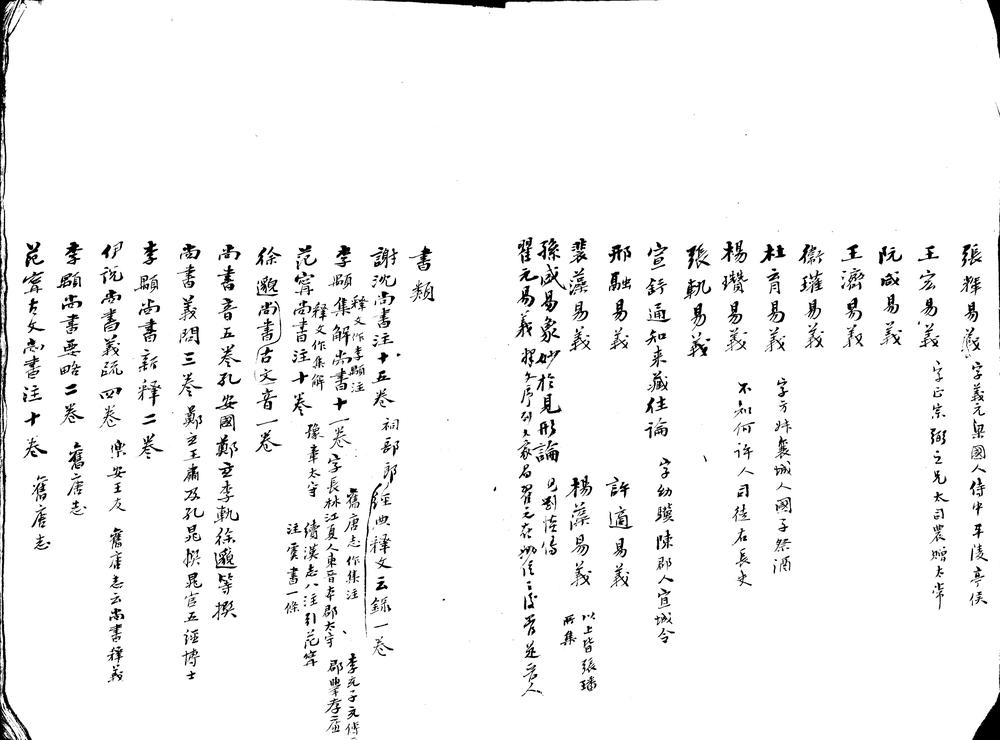 張輝易義 字義元梁國人侍中平陵亭侯
王宏易義 字正宗弼之兄太司農贈太常
阮咸易義
王濟易義
衞瓘易義
杜育易義 字方叔襄城人國子祭酒
楊瓚易義 不知何許人司徒右長史
張軌易義
宣舒通知來藏往論 字幼驥陳郡人宣城令
邢融易義 許適易義
裴藻易義 楊藻易義 以上皆張璠所集
孫盛易象妙於見形論 見劉惔傳
翟元易義
書類
謝沈尚書注十五卷 祠部郎 經典釋文云錄一卷
李顒集解尚書十一卷 釋文作李顒注 字長林江夏人東晉本郡太守 舊唐志作集注
范甯尚書注十卷 釋文作集解 豫章太守 續漢志八注引范甯注虞書一條
徐邈尚書古文音一卷
尚書音五卷孔安國鄭玄李軌徐邈等撰
尚書義問三卷鄭玄王肅及孔晁撰晁官五經博士
李顒尚書新釋二卷
伊說尚書義疏四卷 樂安王友 舊唐志云尚書釋義
李顒尚書要略二卷 舊唐志
范甯古文尚書注十卷 舊唐志